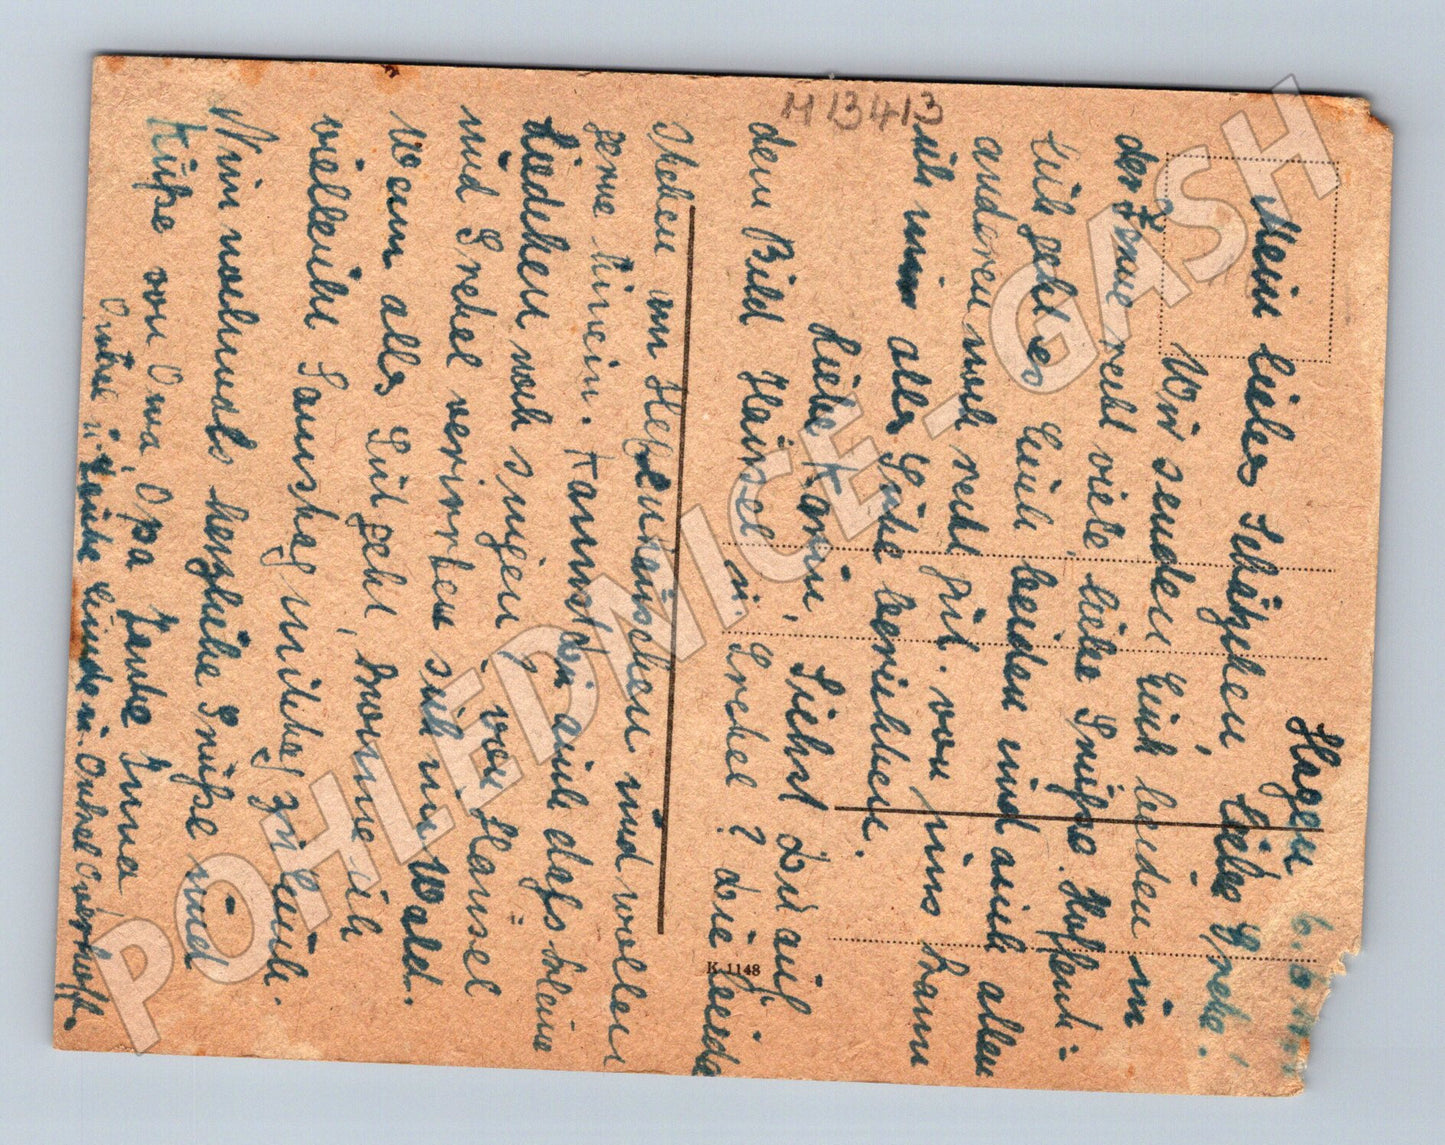 Hagen 6.
Mein liebes Schätzchen, liebe Grete!
Wir senden Euch beiden in
der Ferne recht viele, liebe Grüße. Hoffent-
lich geht es Euch beiden und auch allen
anderen noch recht gut. von uns kann
ich nur alles Gute berichten.
Liebe Karin, Siehst Du auf
dem Bild Hänsel u. Gretel? die beide
stehen am Hexenhäuschen und wollen
gerne hinein. Kannst du auch das kleine
Liedchen noch singen, von Hänsel
und Gretel verirrten sich im Wald.
Wenn alles Gut geht, komme ich
vielleicht Samstag mittag zu Euch.
Nun nochmals herzliche Grüße und
Küße von Oma, Opa Tante Erna
Onkel u. Tante und Onkel
M13413
K 1148
POHLEDNICE - GASH